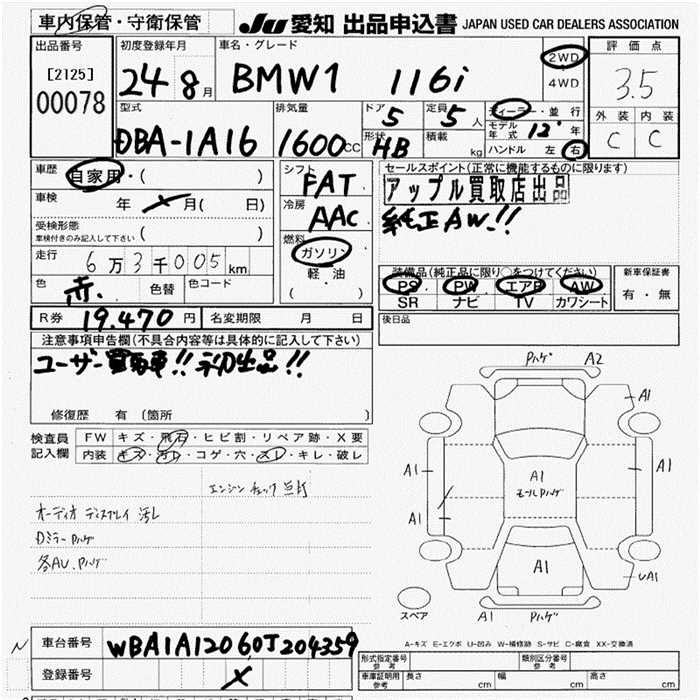 車内保管・守衛保管
JU 愛知 出品申込書 JAPAN USED CAR DEALERS ASSOCIATION
出品番号
[2125]
00078
初度登録年月
24 8月
車名・グレード
BMW1 116i
2WD
4WD
評価点
3.5
外装 内装
C C
型式
DBA-1A16
排気量
1600cc
ドア
5
定員
5人
形状
HB
積載
kg
ディーラー・並行
モデル年式 12年
ハンドル 左 右
車歴
自家用・( )
車検
年 月( 日)
受検形態
車検付きのみ記入して下さい ( )
走行
6万3千005km
色
赤.
色替
色コード
シフト
FAT
冷房
AAC
燃料
ガソリン
軽・油
( )
セールスポイント(正常に機能するものに限ります)
アップル買取店出品
純正AW.!!
装備品(純正品に限り○をつけてください)
PS PW エアB AW
SR ナビ TV カワシート
新車保証書
有・無
R券
19.470円
名変期限 月 日
後日品
注意事項申告欄(不具合内容等は具体的に記入して下さい)
ユーザー買取車!! 初出品!!
修復歴 有 〔箇所
検査員
記入欄
FW キズ・飛石・ヒビ割・リペア跡・X要
内装 キズ・汚レ・コゲ・穴・スレ・キレ・破レ
エンジンチェック点灯
オーディオ ディスプレイ 汚レ
Dミラー Pハゲ
各AU.Pハゲ
Pハゲ A2
A1
A1
A1
A1
A1
モールPハゲ
A1
UA1
スペア
A1 Pハゲ
A-キズ E-エクボ U-凹み W-補修跡 S-サビ C-腐食 XX-交換済
N
車台番号
WBA1A12060J204359
登録番号
形式指定番号
参考
類別区分番号
参考
車庫証明用
参考
長さ cm
幅 cm
高さ cm